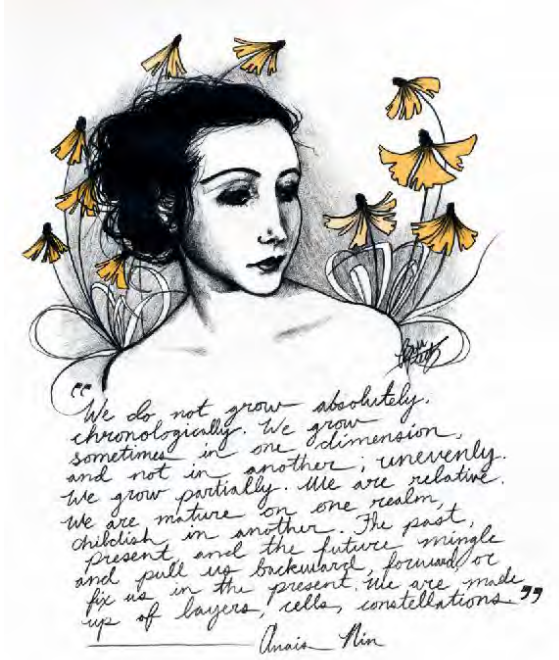 “We do not grow absolutely,
chronologically. We grow
sometimes in one dimension,
and not in another; unevenly.
We grow partially. We are relative.
We are mature on one realm,
childish in another. The past,
present, and the future mingle
and pull us backward, forward, or
fix us in the present. We are made
up of layers, cells, constellations.”
Anais Nin